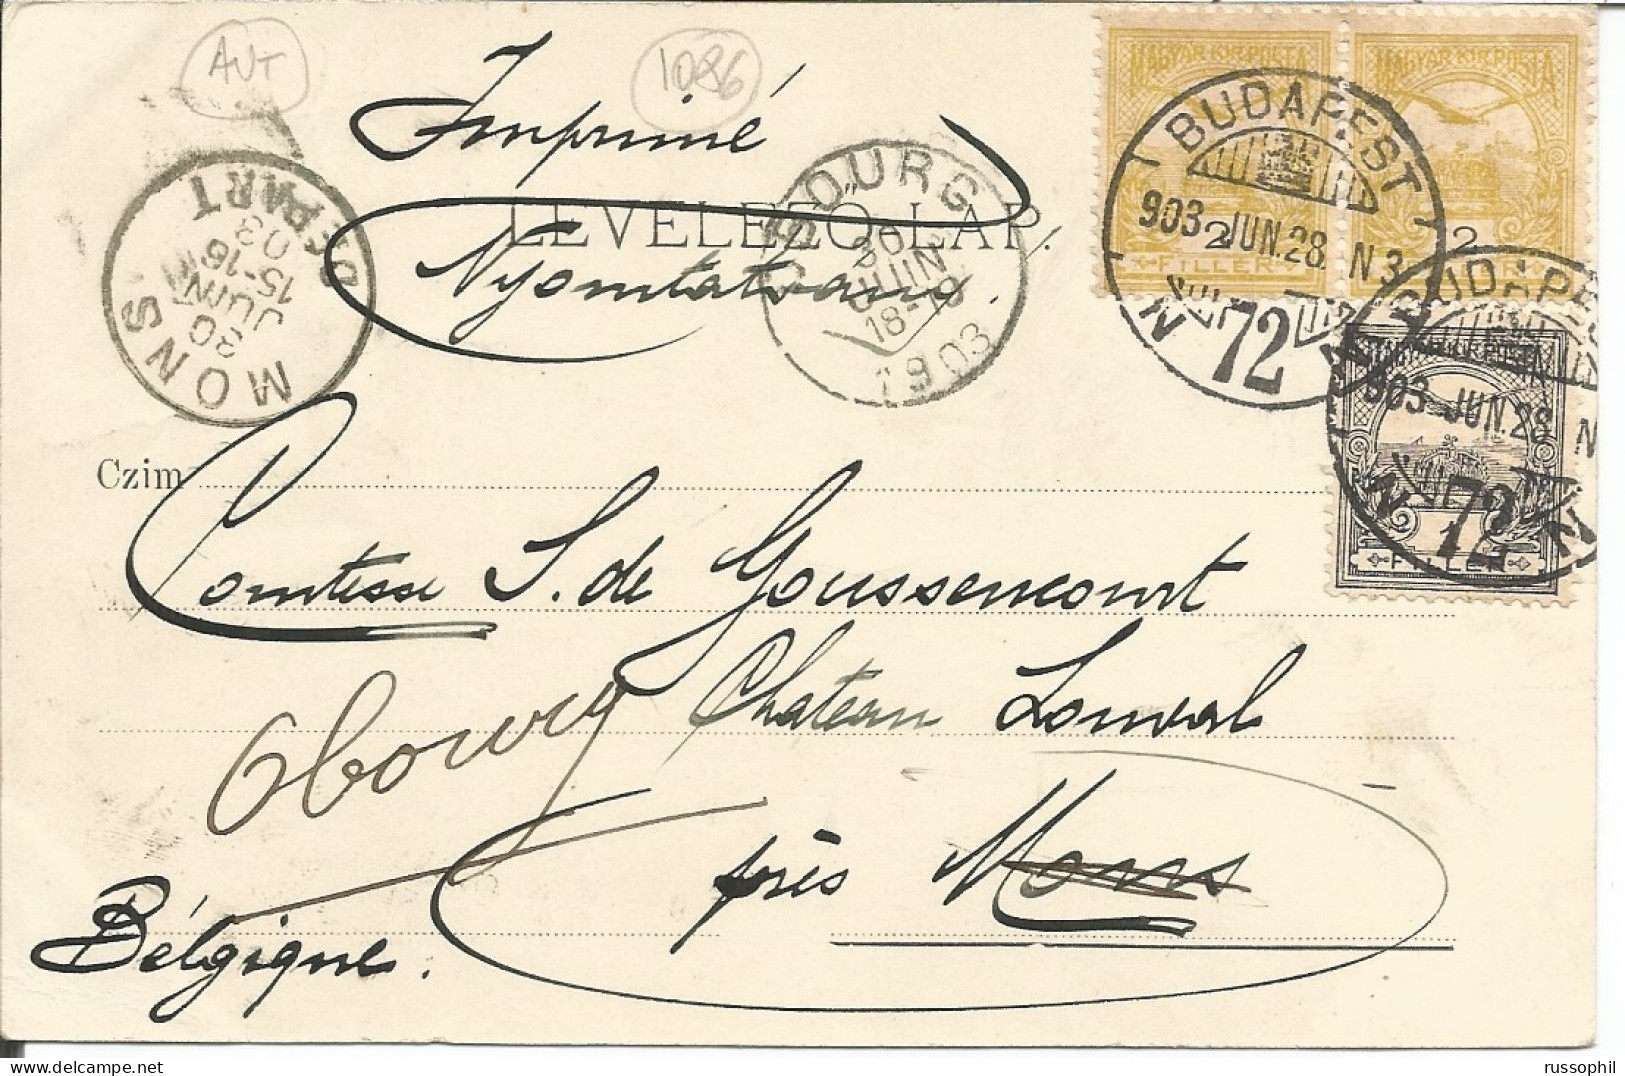 AUT
1096
Imprimé
LEVELEZŐ-LAP.
Nyomtatvány.
MAGYAR KIR. POSTA
MAGYAR KIR. POSTA
2
FILLER
2
BUDAPEST
903 JUN. 28. N 3
72
BUDAPEST
903 JUN. 28 N
72
MAGYAR KIR. POSTA
1
FILLER
MONS
DEPART
30
JUIN
15-16
03
OBOURG
30
JUIN
18-19
1903
Czim
Comtesse S. de Goussencourt
Chateau Lonval
Obourg
près Mons
Bélgique.
russophil